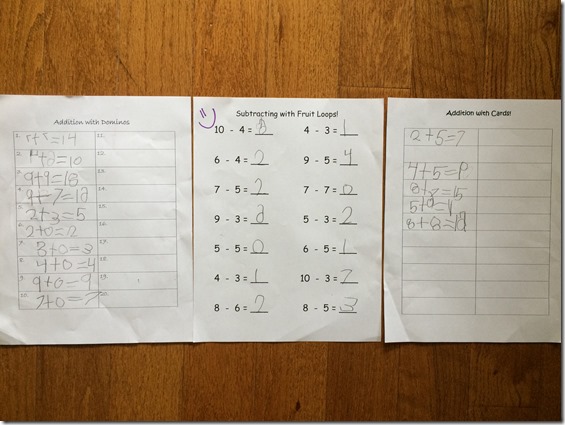 Addition with Dominos
1. 11.
2. 12.
3. 9+9=18 13.
4. 9-7=12 14.
5. 2+3=5 15.
6. 2+0=2 16.
7. 3+0=3 17.
8. 4+0=4 18.
9. 9+0=9 19.
10. 7+0=7 20.
Subtracting with Fruit Loops!
10 - 4 = 4 - 3 = 1
6 - 4 = 2 9 - 5 = 4
7 - 5 = 2 7 - 7 = 0
9 - 3 = 5 - 3 = 2
5 - 5 = 0 6 - 5 = 1
4 - 3 = 1 10 - 3 = 7
8 - 6 = 2 8 - 5 = 3
Addition with Cards!
2+5=7
4+5=
8+8=15
8+8=